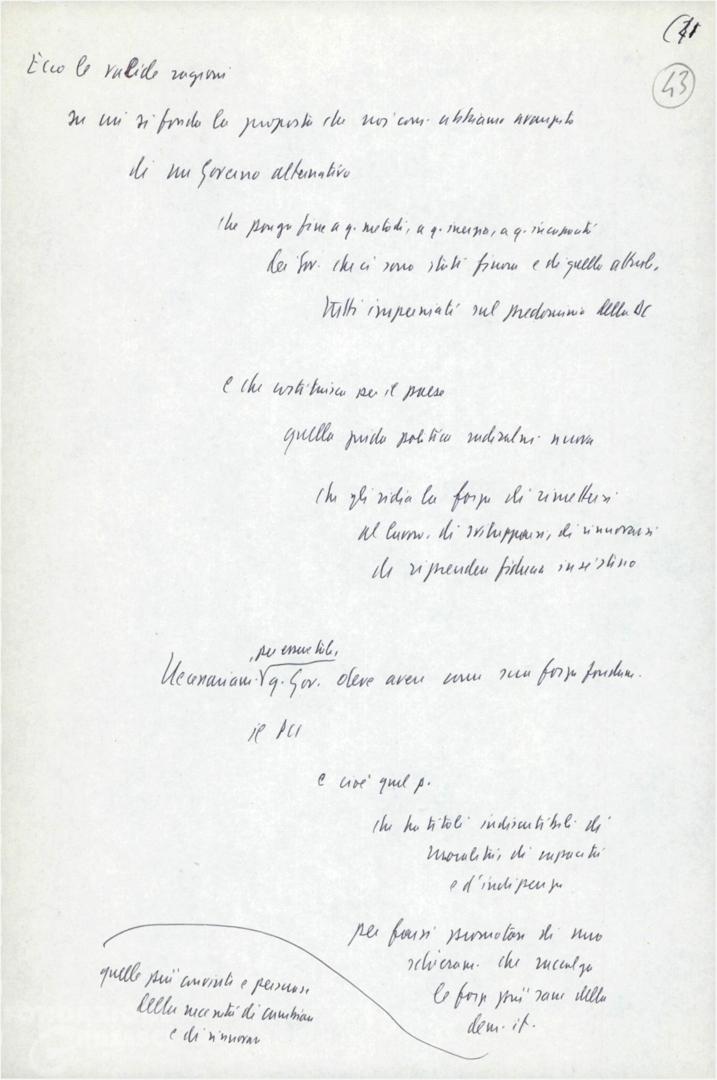 43
Ecco le valide ragioni
su cui si fonda la proposta che noi com. abbiamo avanzato
di un Governo alternativo
che ponga fine a q. metodi, a q. inerzia, a q. incapacità
dei Gov. che ci sono stati finora e di quello attuale,
tutti imperniati sul predominio della DC
e che costituisca per il paese
quella guida politica radicalm. nuova
che gli ridia la forza di rimettersi
al lavoro, di svilupparsi, di rinnovarsi
di riprendere fiducia in se stesso
, per essere tale,
Necessariam. q. Gov. deve avere come sua forza fondam.
il PCI
e cioè quel p.
che ha titoli indiscutibili di
moralità, di capacità
e d'indipenza
per farsi promotore di uno
schieram. che raccolga
le forze più sane della
dem. it.
quelle più convinte e persuase
della necessità di cambiare
e di rinnovare